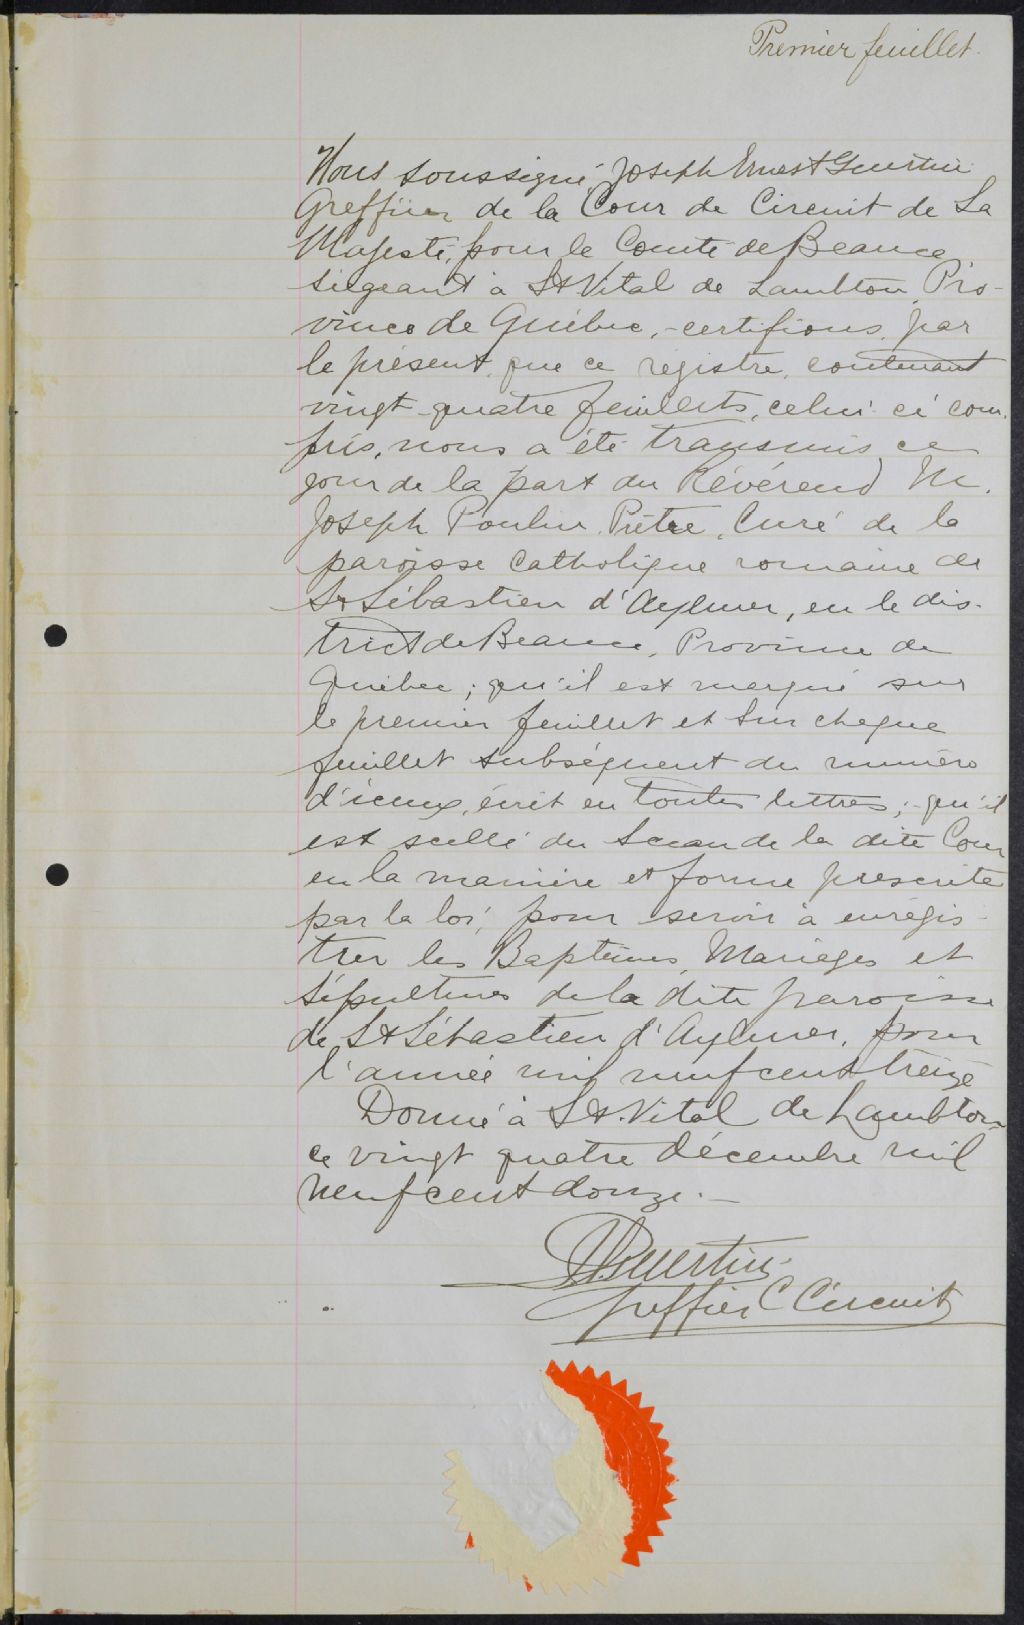 Premier feuillet.
Nous soussigné, Joseph Ernest Guertin
Greffier de la Cour de Circuit de Sa
Majesté, pour le Comté de Beauce
siégeant à St Vital de Lambton, Pro-
vince de Québec, - certifions, par
le présent, que ce régistre, contenant
vingt-quatre feuillets, celui-ci com-
pris, nous a été transmis ce
jour de la part du Révérend M.
Joseph Poulin, Prêtre, Curé de la
paroisse Catholique romaine de
St Sébastien d'Aylmer, en le dis-
trict de Beauce, Province de
Québec; qu'il est marqué sur
le premier feuillet et sur chaque
feuillet subséquent du numéro
d'iceux, écrit en toutes lettres; - qu'il
est scellé du Sceau de la dite Cour
en la manière et forme prescrite
par la loi, pour servir à enrégis-
trer les Baptêmes, Mariages et
Sépultures de la dite paroisse
de St Sébastien d'Aylmer, pour
l'année mil neuf cent treize
Donné à St. Vital de Lambton
ce vingt quatre décembre mil
neuf cent douze. -
Guertin
Greffier C Circuit